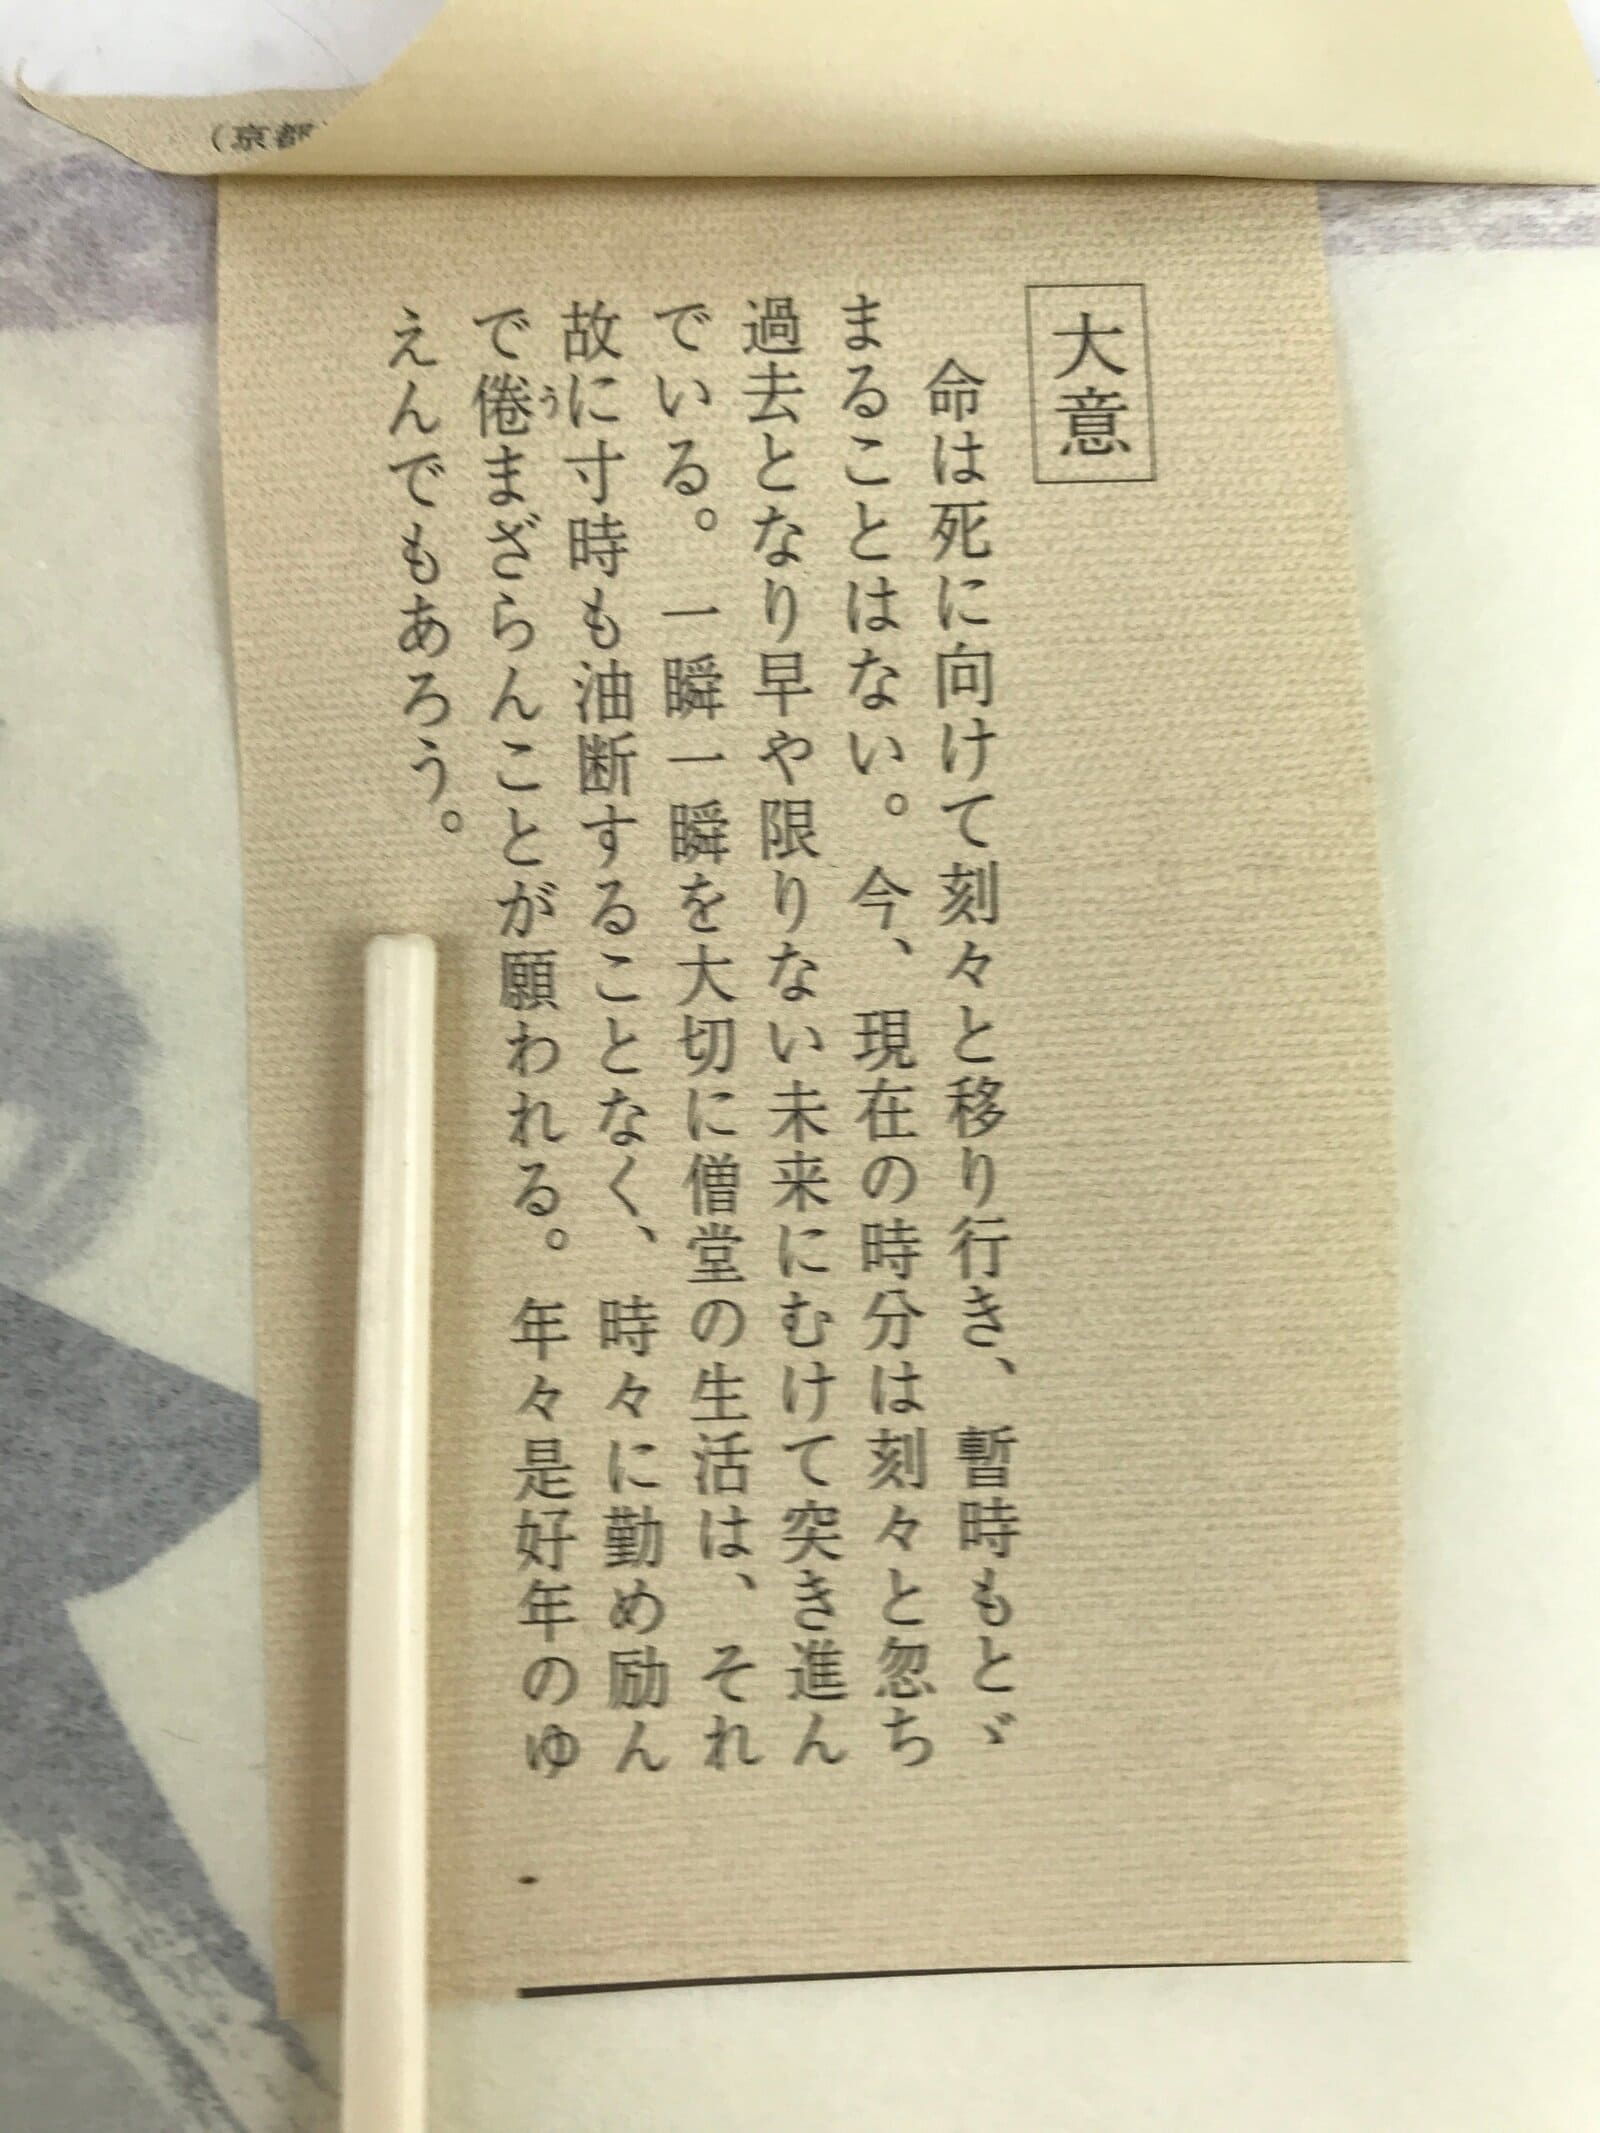 (京都
大意
命は死に向けて刻々と移り行き、暫時もとゞ
まることはない。今、現在の時分は刻々と忽ち
過去となり早や限りない未来にむけて突き進ん
でいる。一瞬一瞬を大切に僧堂の生活は、それ
故に寸時も油断することなく、時々に勤め励ん
で倦まざらんことが願われる。年々是好年のゆ
う
えんでもあろう。